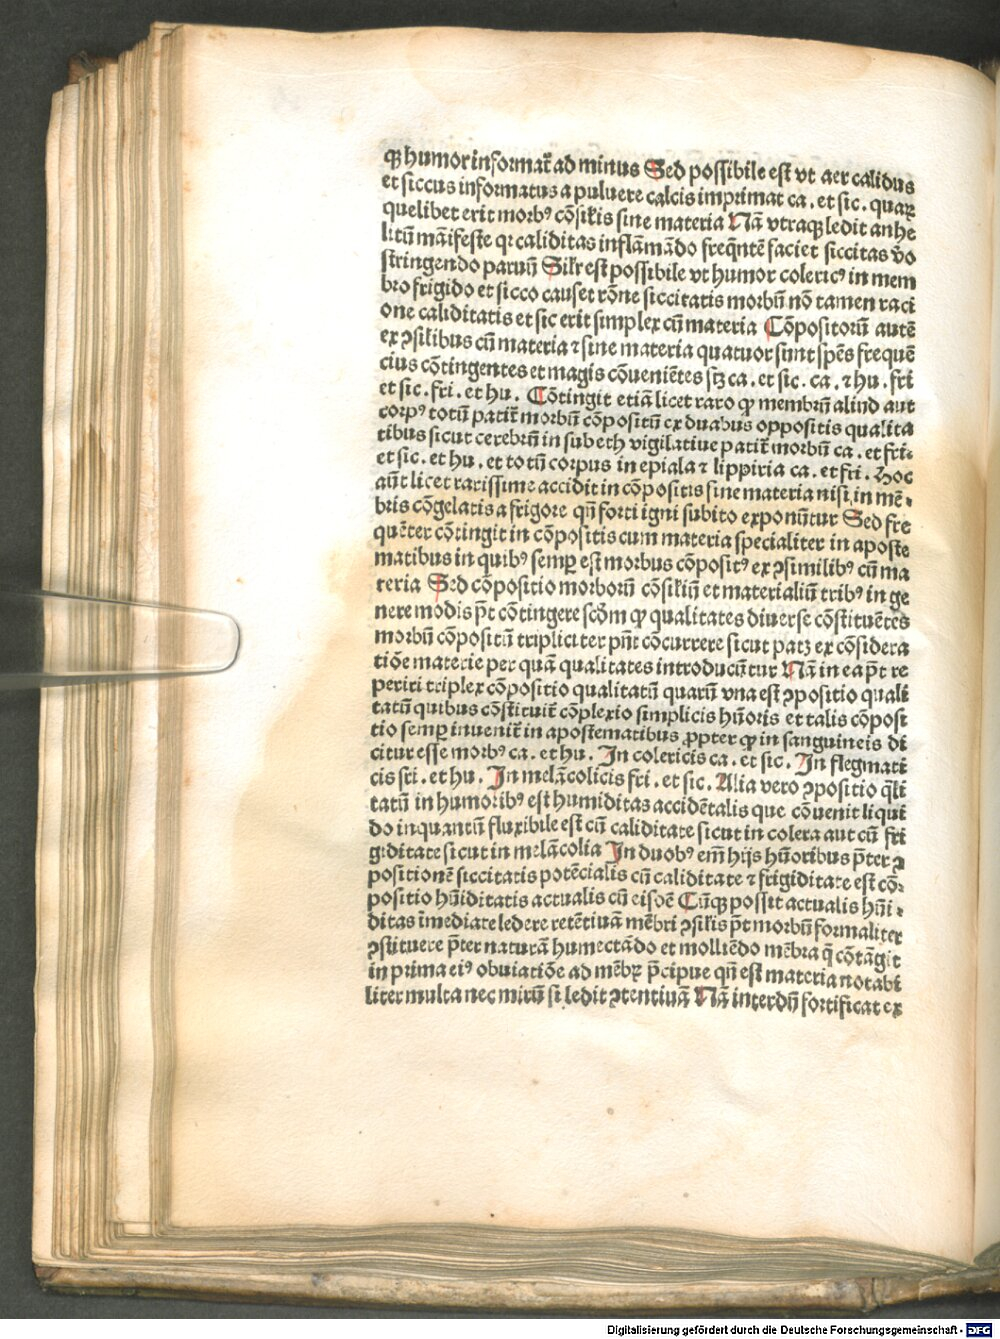 qꝫ humor informat᷑ ad minus Sed possibile est vt aer calidus
et siccus informatus a puluere calcis imprimat ca . et sic . quaꝝ
quelibet erit morbꝰ cōsil̄is sine materia Nā vtraqꝫ ledit anhe
litū māifeste qꝛ caliditas inflāmādo freq̄ntē faciet siccitas v̄o
stringendo paruū Sil̄r est possibile vt humor colericꝰ in mem
bro frigido et sicco causet rōne siccitatis morbū nō tamen raci
one caliditatis et sic erit simplex cū materia Cōpositorū autē
ex ꝯsilibus cū materia ⁊ sine materia quatuor sunt sp̄es frequē
cius cōtingentes et magis cōueniētes sꝫ ca . et sic . ca . ⁊ hu . fri
et sic . fri . et hu . Cōtingit etiā licet raro ꝙ membrū aliud aut
corpꝰ totū patit᷑ morbū cōpositū ex duabus oppositis qualita
tibus sicut cerebrū in subeth vigilatiue patit᷑ morbū ca . et fri-
et sic . et hu . et totū corpus in epiala ⁊ lippiria ca . et fri . Hoc
aūt licet rarissime accidit in cōpositis sine materia nisi in mē-
bris cōgelatis a frigore qn̄ forti igni subito exponūtur Sed fre
quēter cōtingit in cōpositis cum materia specialiter in aposte
matibus in quibꝰ semꝑ est morbus cōpositꝰ ex ꝯsimilibꝰ cū ma
teria Sed cōpositio morborū cōsiliū et materialiū tribꝰ in ge
nere modis p̄t cōtingere scd̄m ꝙ qualitates diuerse cōstituētes
morbū cōpositū tripliciter pn̄t cōcurrere sicut patꝫ ex cōsidera
tiōe materie per quā qualitates introducūtur Nā in ea p̄t re
periri triplex cōpositio qualitatū quarū vna est ꝯpositio quali
tatū quibus cōstituit᷑ cōplexio simplicis hūoris et talis cōposi
tio semꝑ inuenit᷑ in apostematibus ꝓpter ꝙ in sanguineis di
citur esse morbꝰ ca . et hu . In colericis ca . et sic . In flegmati
cis fri . et hu . In melācolicis fri . et sic . Alia vero ꝯpositio q̄li
tatū in humoribꝰ est humiditas accidētalis que cōuenit liqui
do inquantū fluxibile est cū caliditate sicut in colera aut cū fri
giditate sicut in melācolia In duobꝰ em̄ hijs hūoribus p̄ter ꝯ
positionē siccitatis potēcialis cū caliditate ⁊ frigiditate est cō-
positio hūiditatis actualis cū eisdē Cūqꝫ possit actualis hūi-
ditas īmediate ledere retētiuā mēbri ꝯsil̄is p̄t morbū formaliter
ꝯstituere p̄ter naturā humectādo et molliēdo mēbra q̄ cōtāgit
in prima eiꝰ obuiatiōe ad mēbꝝ p̄cipue qn̄ est materia notabi
liter multa nec mirū si ledit ꝯtentiuā Nā interdū fortificat ex
Digitalisierung gefördert durch die Deutsche Forschungsgemeinschaft - DFG